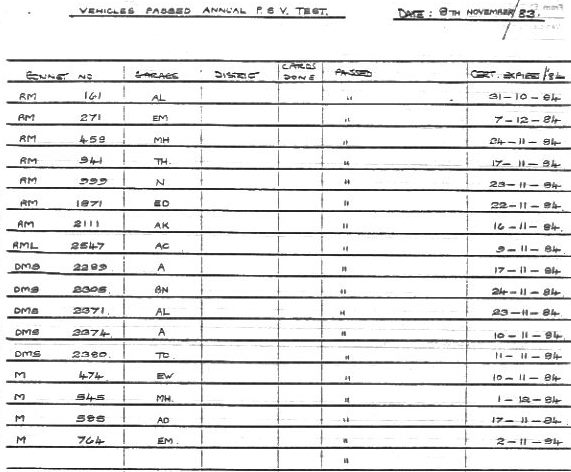 VEHICLES PASSED ANNUAL P.S.V. TEST. DATE: 8TH NOVEMBER 83.
BONNET NO GARAGE DISTRICT CARDS DONE PASSED CERT. EXPIRES/84
RM 161 AL " 31-10-84
RM 271 EM " 7-12-84
RM 459 MH " 24-11-84
RM 941 TH. " 17-11-84
RM 999 N " 23-11-84
RM 1871 ED " 22-11-84
RM 2111 AK " 16-11-84.
RML 2547 AC " 9-11-84.
DMS 2289 A " 17-11-84
DMS 2305 BN " 24-11-84.
DMS 2371 AL " 23-11-84
DMS 2374 A " 10-11-84
DMS 2380. TC " 11-11-84.
M 474 EW " 10-11-84
M 545 MH. " 1-12-84
M 585 AD " 17-11-84.
M 764 EM. " 2-11-84
"